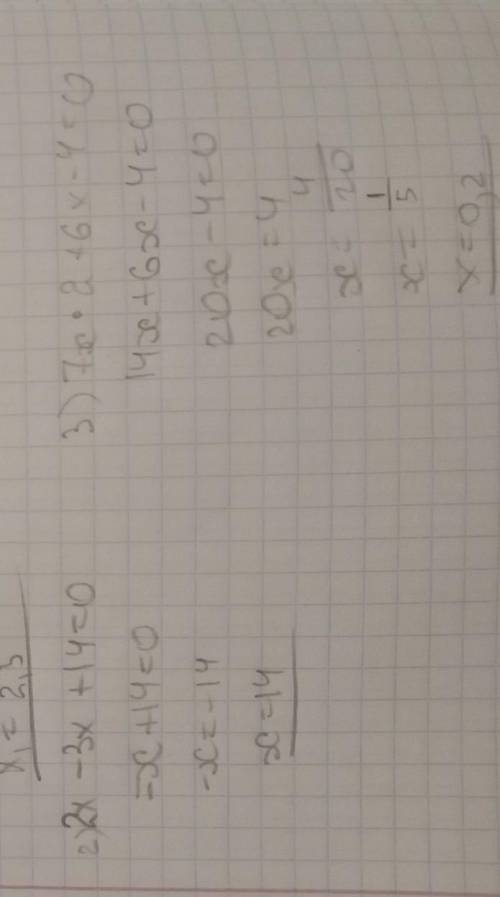 x₁ = 2,3
2) 2x - 3x + 14 = 0
-x + 14 = 0
-x = -14
x = 14
3) 7x · 2 + 6x - 4 = 0
14x + 6x - 4 = 0
20x - 4 = 0
20x = 4
x = 4/20
x = 1/5
x = 0,2